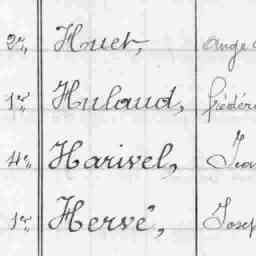 2e, Huet, Ange
1e, Hulaud, frédér
4e, Harivel, Jean
1e, Hervé, Josep